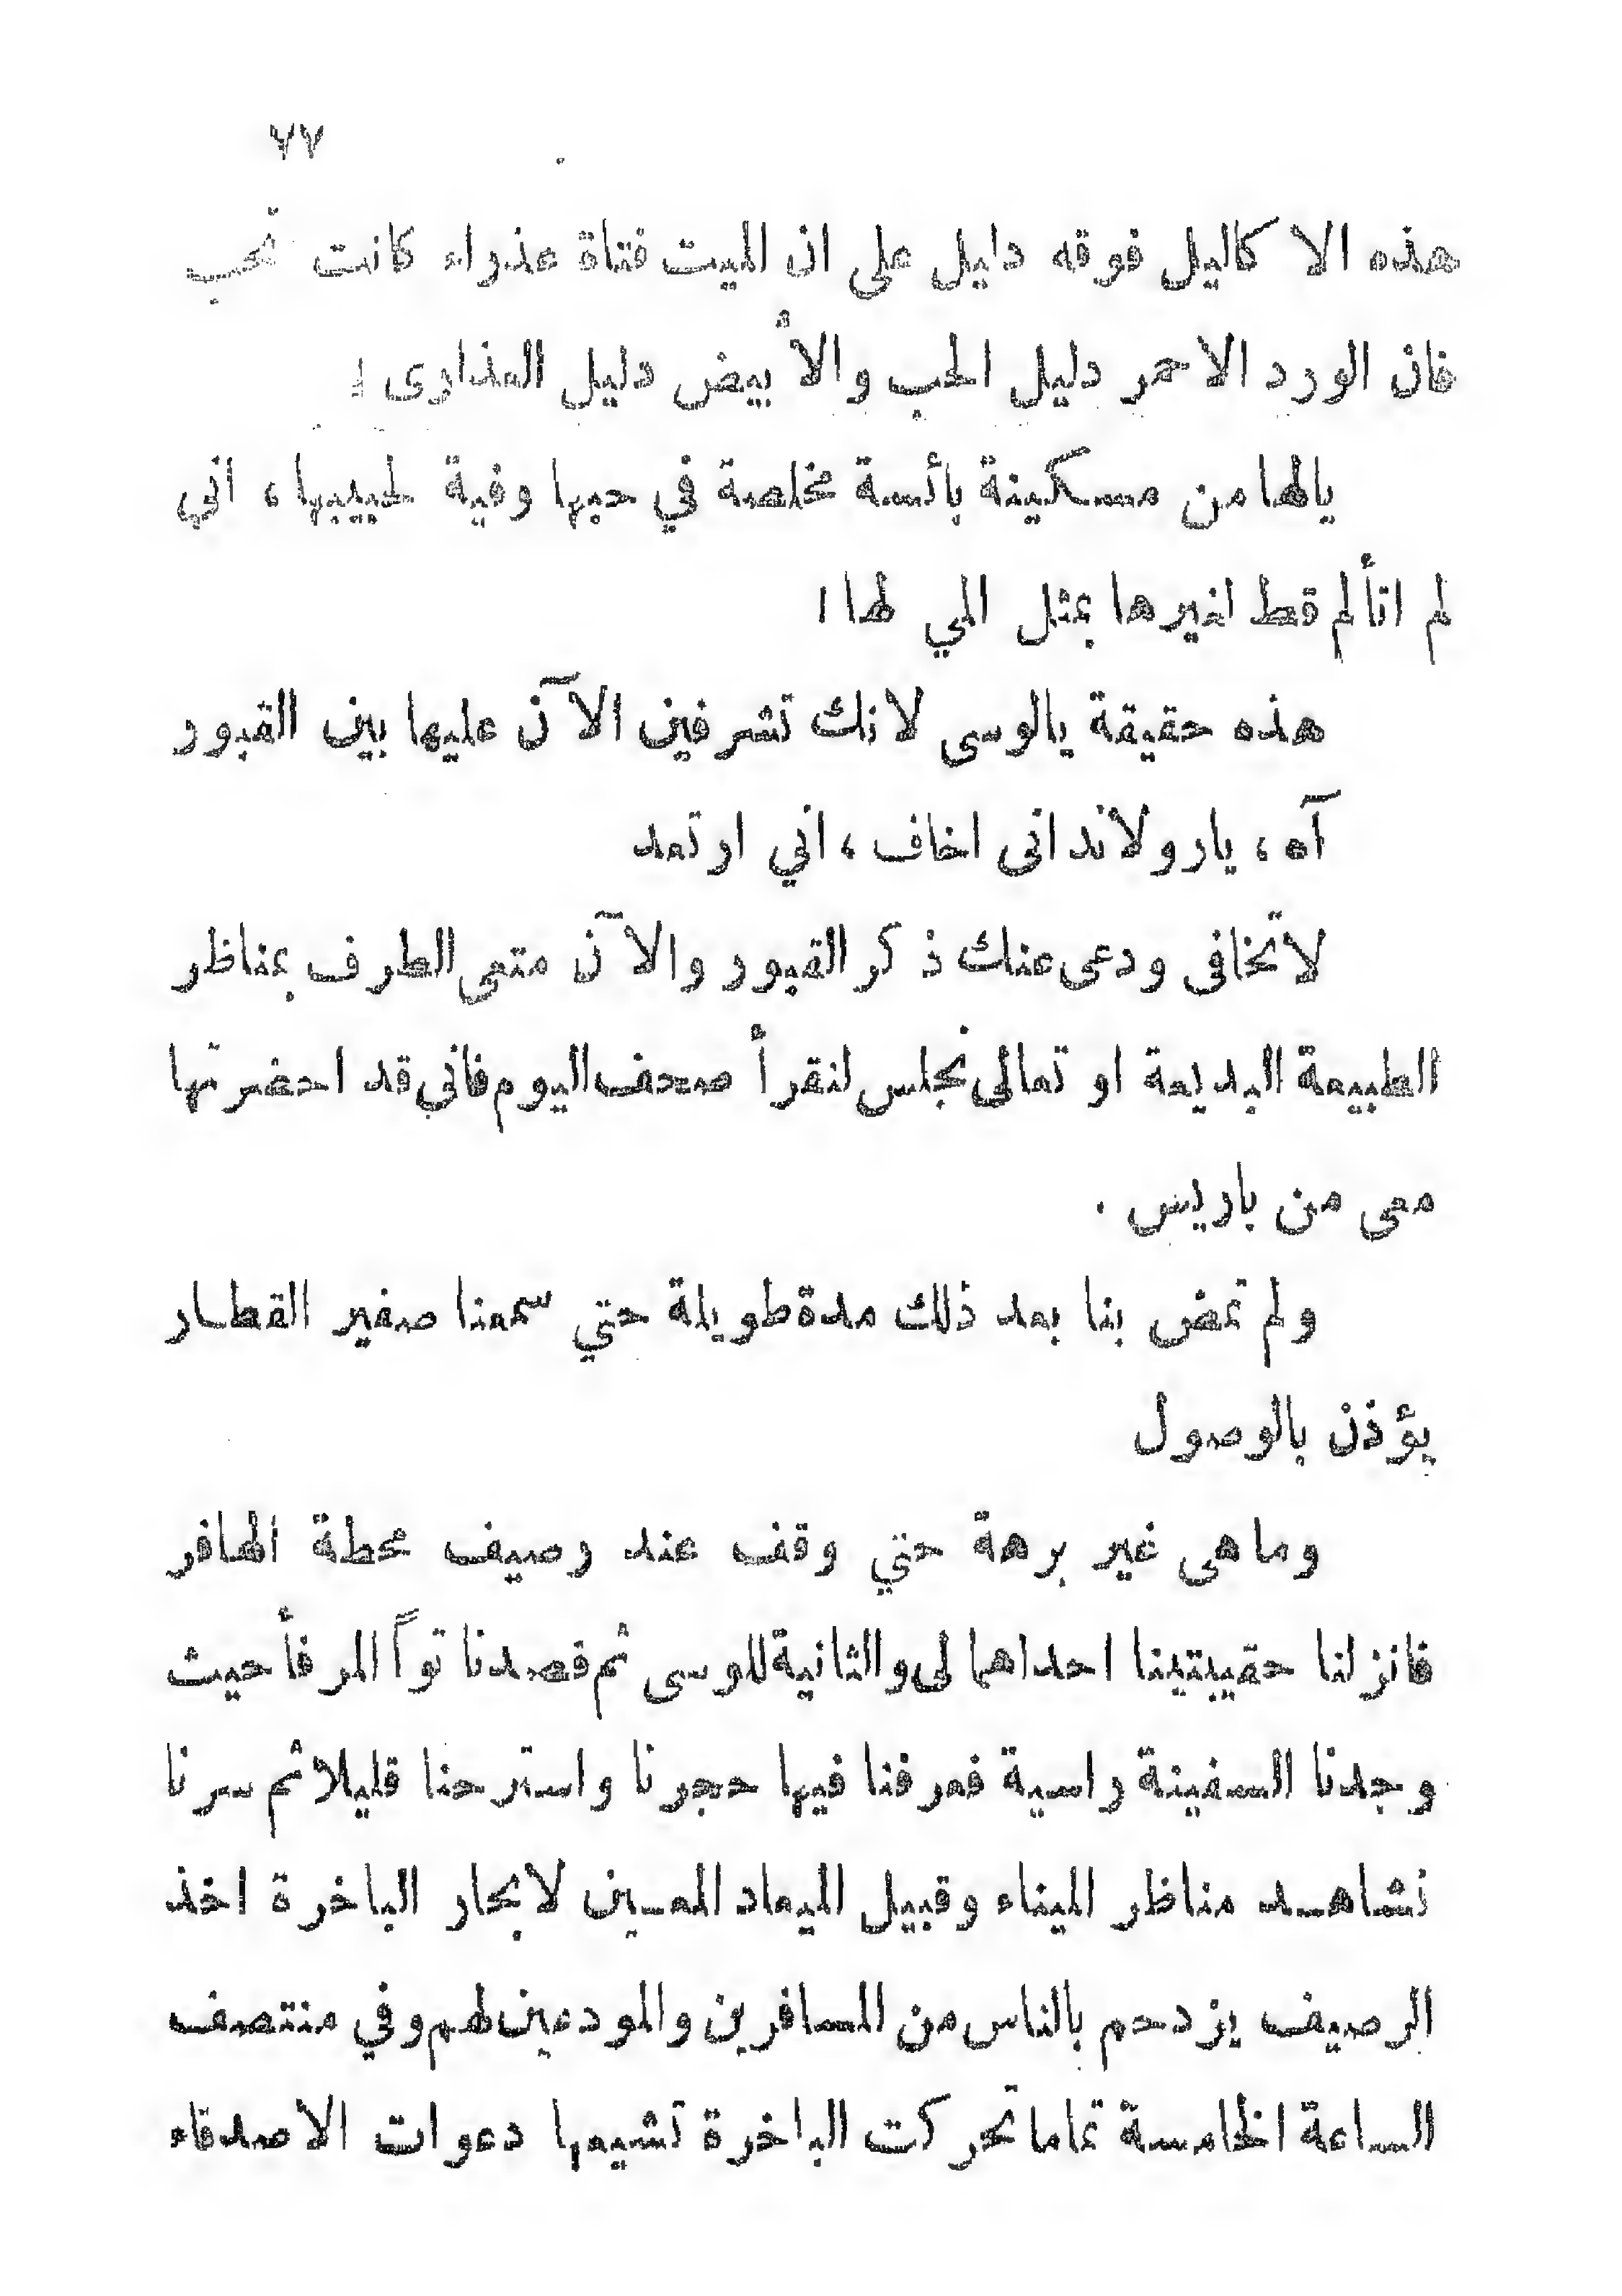 ٧٧
هذه الاكاليل فوقه دليل على ان الميت فتاة عذراء كانت تحب
فان الورد الاحمر دليل الحب والأبيض دليل العذارى !
يالها من مسكينة بائسة مخلصة في حبها وفية لحبيبها ، اني
لم اتألم قط لغيرها بمثل المي لها !
هذه حقيقة يالوسى لانك تشرفين الآن عليها بين القبور
آه ، يارولاند انى اخاف ، اني ارتعد
لاتخافى ودعى عنك ذكر القبور والآن متعى الطرف بمناظر
الطبيعة البديعة او تعالى نجلس لنقرأ صحف اليوم فاني قد احضرتها
معى من باريس .
ولم تمض بنا بعد ذلك مدة طويلة حتي سمعنا صفير القطار
يؤذن بالوصول
وما هى غير برهة حتي وقف عند رصيف محطة الهافر
فانزلنا حقيبتينا احداهما لى والثانية للوسى ثم قصدنا تواً المرفأ حيث
وجدنا السفينة راسية فعرفنا فيها حجرنا واسترحنا قليلا ثم سرنا
نشاهد مناظر الميناء وقبيل الميعاد المعين لابحار الباخرة اخذ
الرصيف يزدحم بالناس من المسافرين والمودعين لهم وفي منتصف
الساعة الخامسة تماما تحركت الباخرة تشيعها دعوات الاصدقاء